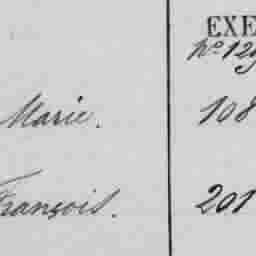 EXE
No 129
Marie. 108
François. 201